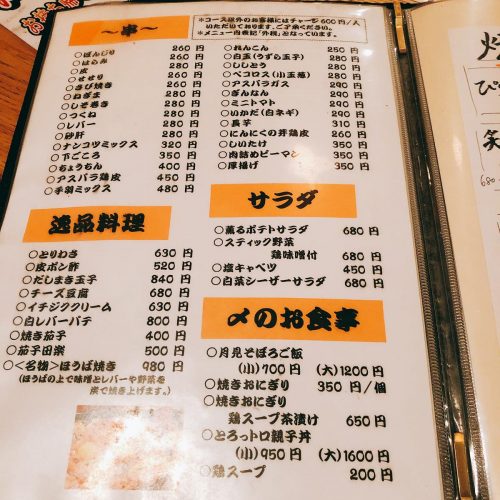 *コース以外のお客様にはチャージ600円/人
いただいております。ご了承ください。
*メニュー内表記「外税」となっています。
～串～
○ぼんじり 260円
○はらみ 260円
○皮 280円
○せせり 260円
○さび焼き 280円
○ねぎま 280円
○しそ巻き 280円
○つくね 280円
○レバー 280円
○砂肝 280円
○ナンコツミックス 320円
○下ごころ 350円
○ちょうちん 400円
○アスパラ鶏皮 450円
○手羽ミックス 480円
○れんこん 250円
○白玉(うずら玉子) 280円
○ししとう 280円
○ペコロス(小玉葱) 280円
○アスパラガス 290円
○ぎんなん 290円
○ミニトマト 290円
○いかだ(白ネギ) 290円
○長芋 310円
○にんにくの芽鶏皮 260円
○しいたけ 350円
○肉詰めピーマン 350円
○厚揚げ 350円
逸品料理
○とりわさ 630円
○皮ポン酢 520円
○だしまき玉子 840円
○チーズ豆腐 680円
○イチジククリーム 630円
○白レバーパテ 800円
○焼き茄子 400円
○茄子田楽 500円
○<名物>ほうば焼き 980円
(ほうばの上で味噌とレバーや野菜を
炭で焼き上げます。)
サラダ
○薫るポテトサラダ 680円
○スティック野菜
鶏味噌付 680円
○塩キャベツ 450円
○白菜シーザーサラダ 680円
〆のお食事
○月見そぼろご飯
(小)700円 (大)1200円
○焼きおにぎり 350円/個
○焼きおにぎり
鶏スープ茶漬け 650円
○とろっトロ親子丼
(小)950円 (大)1600円
○鶏スープ 200円
ぴ
笑
680